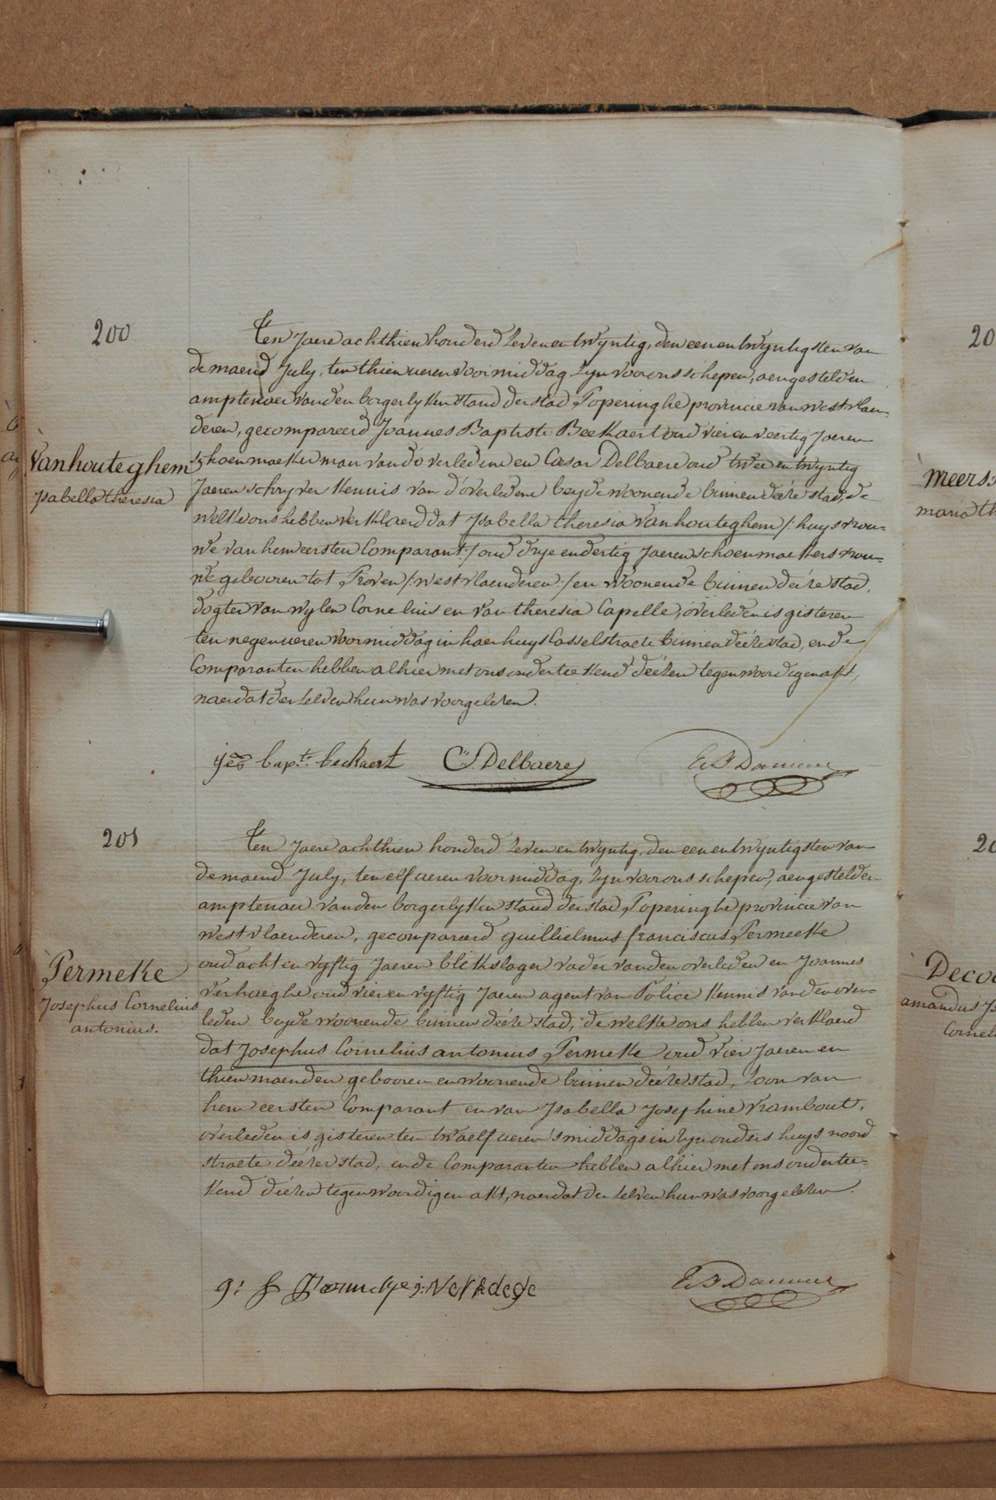 200
Vanhouteghem
Isabella theresia
Ten Jaere achthien honderd zeven en twyntig, den eenentwyntigsten van
de maend July, ten thien ueren voormiddag zyn voor ons schepen, aengestelden
amptenaer van den borgerlyken stand der stad Poperinghe provincie van westvlaen-
deren, gecompareerd Joannes Baptiste Beekaert oud vier en veertig Jaeren
schoenmaeker man van d'overledene en Cæsar Delbaere oud twee en twyntig
Jaeren schryver kennis van d'overledene beyde woonende binnen deéze stad, de
welke ons hebben verklaerd dat Isabella theresia vanhouteghem /: huysvrou-
we van hem eersten Comparant :/ oud drye en dertig Jaeren schoenmaekers vrou-
we gebooren tot Proven /: westvlaenderen :/ en woonende binnen deéze stad,
dogter van wylen Cornelius en van theresia Capelle, overleden is gisteren
ten negen ueren voormiddag in haer huys Casselstraete binnen deéze stad, en de
Comparanten hebben alhier met ons onderteekend deézen tegenwoordigen akt,
naer dat den zelven hun was voorgelezen.
jes bap.te beckaert C. Delbaere
201
Permeke
Josephus Cornelius
antonius.
Ten Jaere achthien honderd zeven en twyntig, den eenentwyntigsten van
de maend July, ten elf ueren voormiddag, zyn voor ons schepen, aengestelden
amptenaer van den borgerlyken stand der stad Poperinghe provincie van
westvlaenderen, gecompareerd guillielmus franciscus Permeeke
oud acht en vyftig Jaeren blekslager vader van den overleden en Joannes
verhaeghe oud vier en vyftig Jaeren agent van Police kennis van den over-
leden beyde woonende binnen deéze stad, de welke ons hebben verklaerd
dat Josephus Cornelius antonius Permeke oud vier Jaeren en
thien maenden gebooren en woonende binnen deéze stad, zoon van
hem eersten Comparant en van Isabella Josephine Rambout,
overleden is gisteren ten twaelf ueren 's middags in zyn ouders huys noord
straete deézer stad, en de Comparanten hebben alhier met ons ondertee-
kend deézen tegenwoordigen akt, naer dat den zelven hun was voorgelezen.
20
meerss
maria th
20
Decoo
amandus J
Cornel